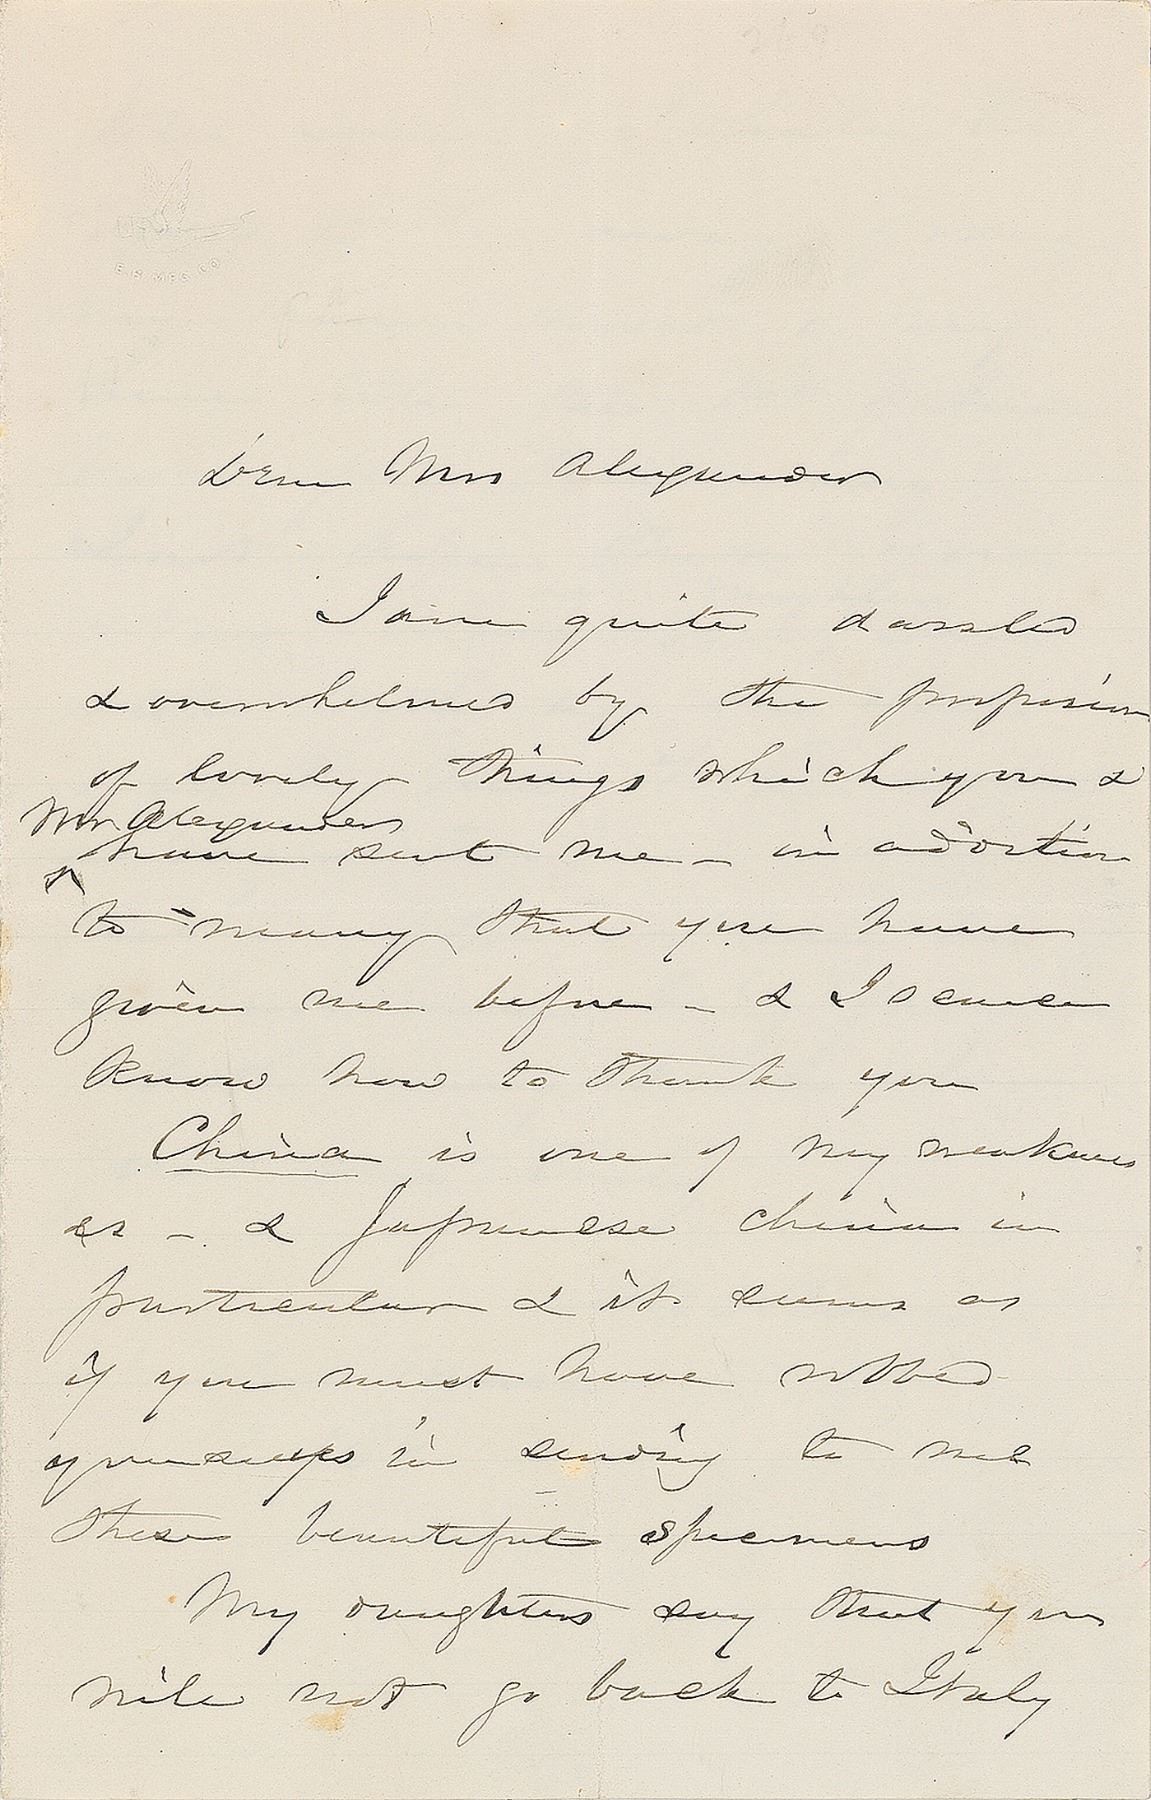 E. H. MFG. CO.
Dear Mrs Alexander
I am quite dazzled
& overwhelmed by the profusion
of lovely things which you &
Mr Alexander
have sent me – in addition
to many that you have
given me before – & I scarce
know how to thank you
China is one of my weakness
es – & Japanese china in
particular & it seems as
if you must have robbed
yourselves in sending to me
these beautiful specimens
My daughters say that you
will not go back to Italy